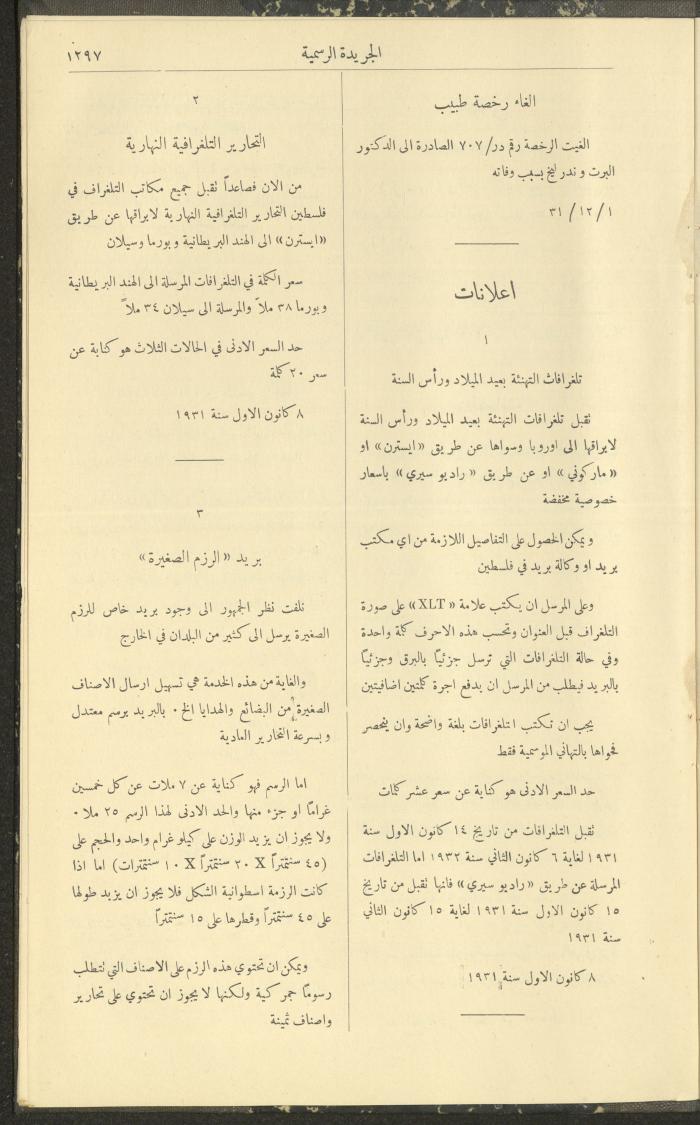 الجريدة الرسمية
١٢٩٧
الغاء رخصة طبيب
الغيت الرخصة رقم در/ ٧٠٧ الصادرة الى الدكتور
البرت وندرليخ بسبب وفاته
٣١/١٢/١
اعلانات
١
تلغرافات التهنئة بعيد الميلاد ورأس السنة
نقبل تلغرافات التهنئة بعيد الميلاد ورأس السنة
لابراقها الى اوروبا وسواها عن طريق «ايسترن» او
«ماركوني» او عن طريق «راديو سيري» باسعار
خصوصية مخفضة
ويمكن الحصول على التفاصيل اللازمة من اي مكتب
بريد او وكالة بريد في فلسطين
وعلى المرسل ان يكتب علامة «XLT» على صورة
التلغراف قبل العنوان وتحسب هذه الاحرف كلمة واحدة
وفي حالة التلغرافات التي ترسل جزئيًا بالبرق وجزئيًا
بالبريد فيطلب من المرسل ان يدفع اجرة كلمتين اضافيتين
يجب ان تكتب التلغرافات بلغة واضحة وان ينحصر
فحواها بالتهاني الموسمية فقط
حد السعر الادنى هو كناية عن سعر عشر كلمات
نقبل التلغرافات من تاريخ ١٤ كانون الاول سنة
١٩٣١ لغاية ٦ كانون الثاني سنة ١٩٣٢ اما التلغرافات
المرسلة عن طريق «راديو سيري» فانها نقبل من تاريخ
١٥ كانون الاول سنة ١٩٣١ لغاية ١٥ كانون الثاني
سنة ١٩٣١
٨ كانون الاول سنة ١٩٣١
٢
التحارير التلغرافية النهارية
من الان فصاعداً نقبل جميع مكاتب التلغراف في
فلسطين التحارير التلغرافية النهارية لابراقها عن طريق
«ايسترن» الى الهند البريطانية وبورما وسيلان
سعر الكلمة في التلغرافات المرسلة الى الهند البريطانية
وبورما ٣٨ ملاً والمرسلة الى سيلان ٣٤ ملاً
حد السعر الادنى في الحالات الثلاث هو كناية عن
سعر ٢٠ كلمة
٨ كانون الاول سنة ١٩٣١
٣
بريد «الرزم الصغيرة»
نلفت نظر الجمهور الى وجود بريد خاص للرزم
الصغيرة يرسل الى كثير من البلدان في الخارج
والغاية من هذه الخدمة هي تسهيل ارسال الاصناف
الصغيرة من البضائع والهدايا الخ ٠ بالبريد برسم معتدل
وبسرعة التحارير العادية
اما الرسم فهو كناية عن ٧ ملات عن كل خمسين
غرامًا او جزء منها والحد الادنى لهذا الرسم ٢٥ ملا ٠
ولا يجوز ان يزيد الوزن على كيلو غرام واحد والحجم على
(٤٥ سنتمتراً X ٢٠ سنتمتراً X ١٠ سنتمترات) اما اذا
كانت الرزمة اسطوانية الشكل فلا يجوز ان يزيد طولها
على ٤٥ سنتمتراً وقطرها على ١٥ سنتمتراً
ويمكن ان تحتوي هذه الرزم على الاصناف التي نتطلب
رسومًا جمركية ولكنها لا يجوز ان تحتوي على تحارير
واصناف ثمينة